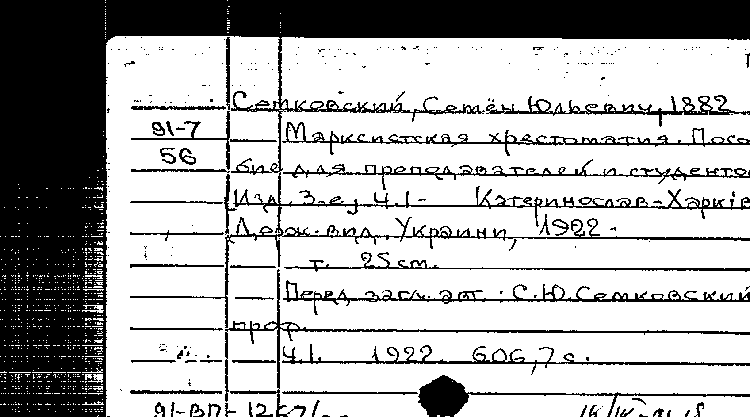 Семковский, Семён Юльевич, 1882
91-7 Марксистская хрестоматия. Посо
56 бие для преподавателей и студенто
Изд. 3-е, ч.1- Катеринослав-Харкiв
Держ. вид. Украини, 1922 -
т. 25 cm.
Перед загл. авт.: С.Ю. Семковский
проф.
ч.1. 1922. 606,7 с.
91-ВП-